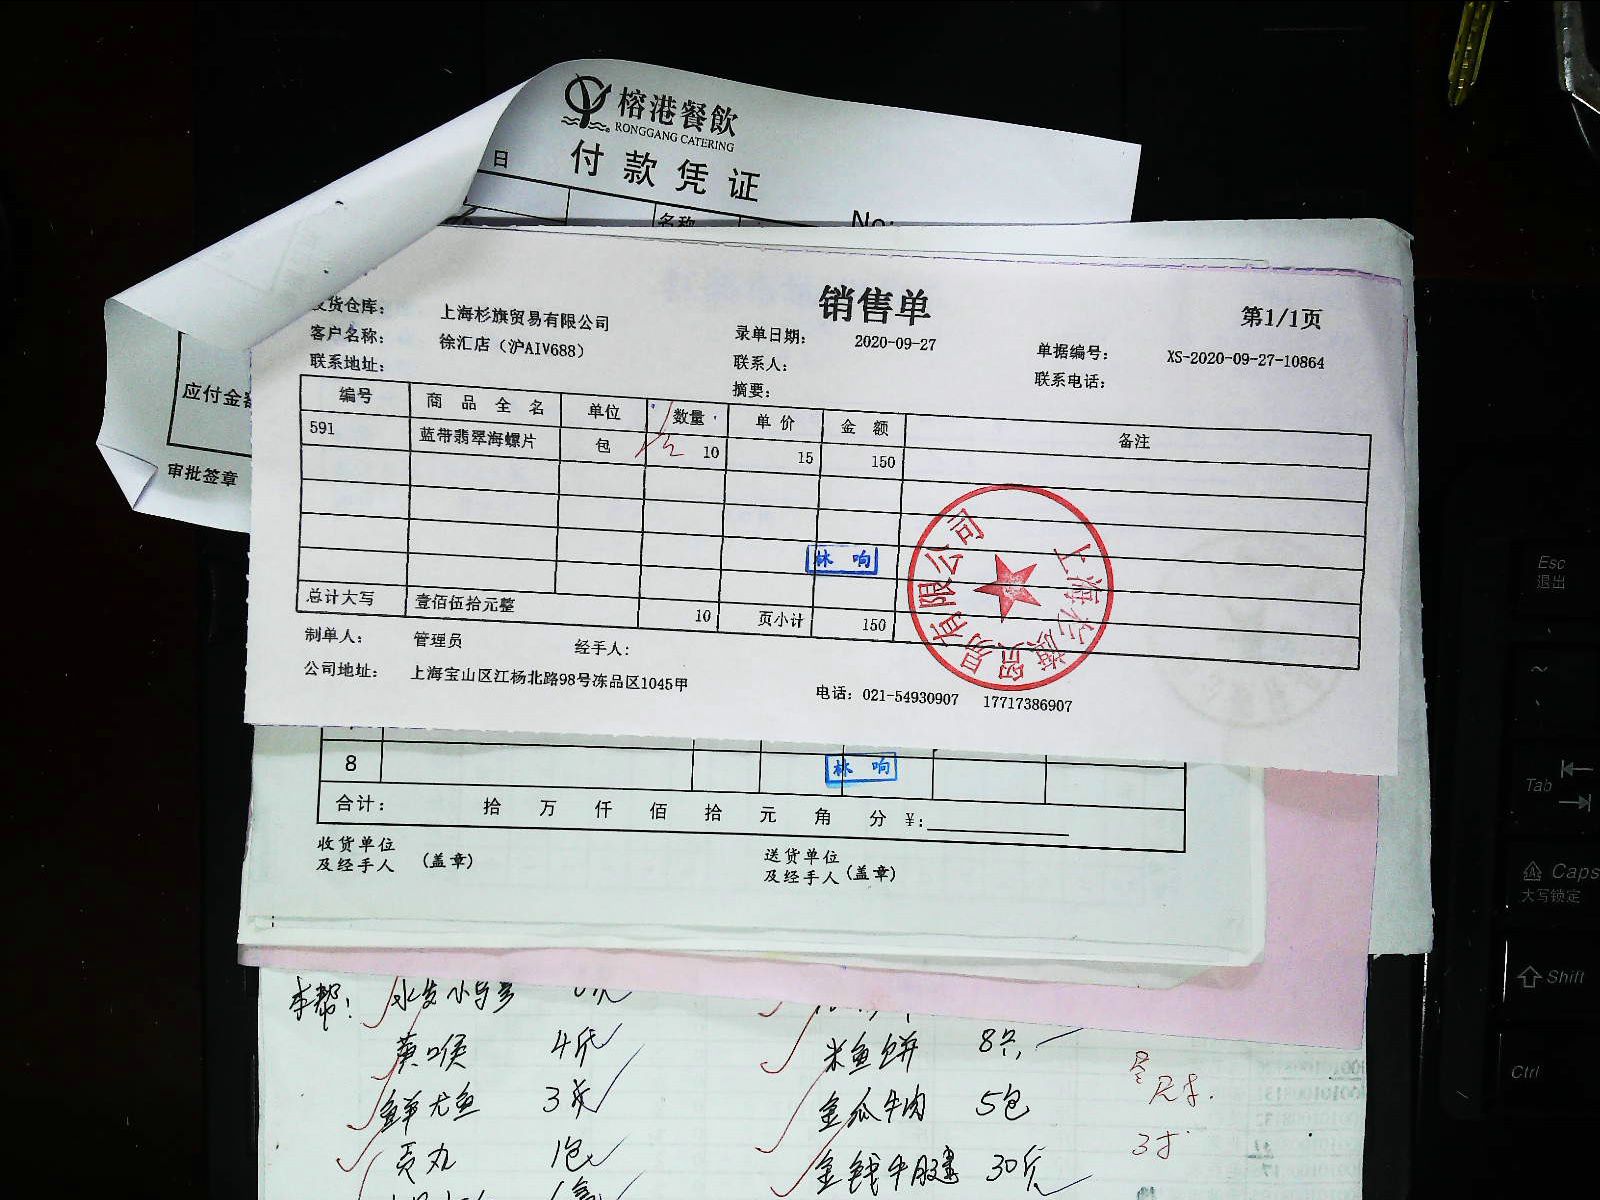 榕港餐飲
RONGGANG CATERING
日 付款凭证
名称 No:
应付金
审批签章
销售单
第1/1页
发货仓库: 上海杉旗贸易有限公司 录单日期: 2020-09-27 单据编号: XS-2020-09-27-10864
客户名称: 徐汇店（沪AIV688） 联系人: 联系电话:
联系地址: 摘要:
编号 商品全名 单位 数量 单价 金额 备注
591 蓝带翡翠海螺片 包 10 15 150
林响
上海杉旗贸易有限公司
总计大写 壹佰伍拾元整 10 页小计 150
制单人: 管理员 经手人:
公司地址: 上海宝山区江杨北路98号冻品区1045甲 电话: 021-54930907 17717386907
8
林响
合计: 拾 万 仟 佰 拾 元 角 分 ¥:
收货单位及经手人 (盖章) 送货单位及经手人 (盖章)
本帮:
黄喉 4斤 米鱼饼 8只
鲜尤鱼 3斤 金瓜牛肉 5包
贡丸 1包 金钱牛腱 30斤
Esc
退出
~
Tab
Caps
大写锁定
Shift
Ctrl